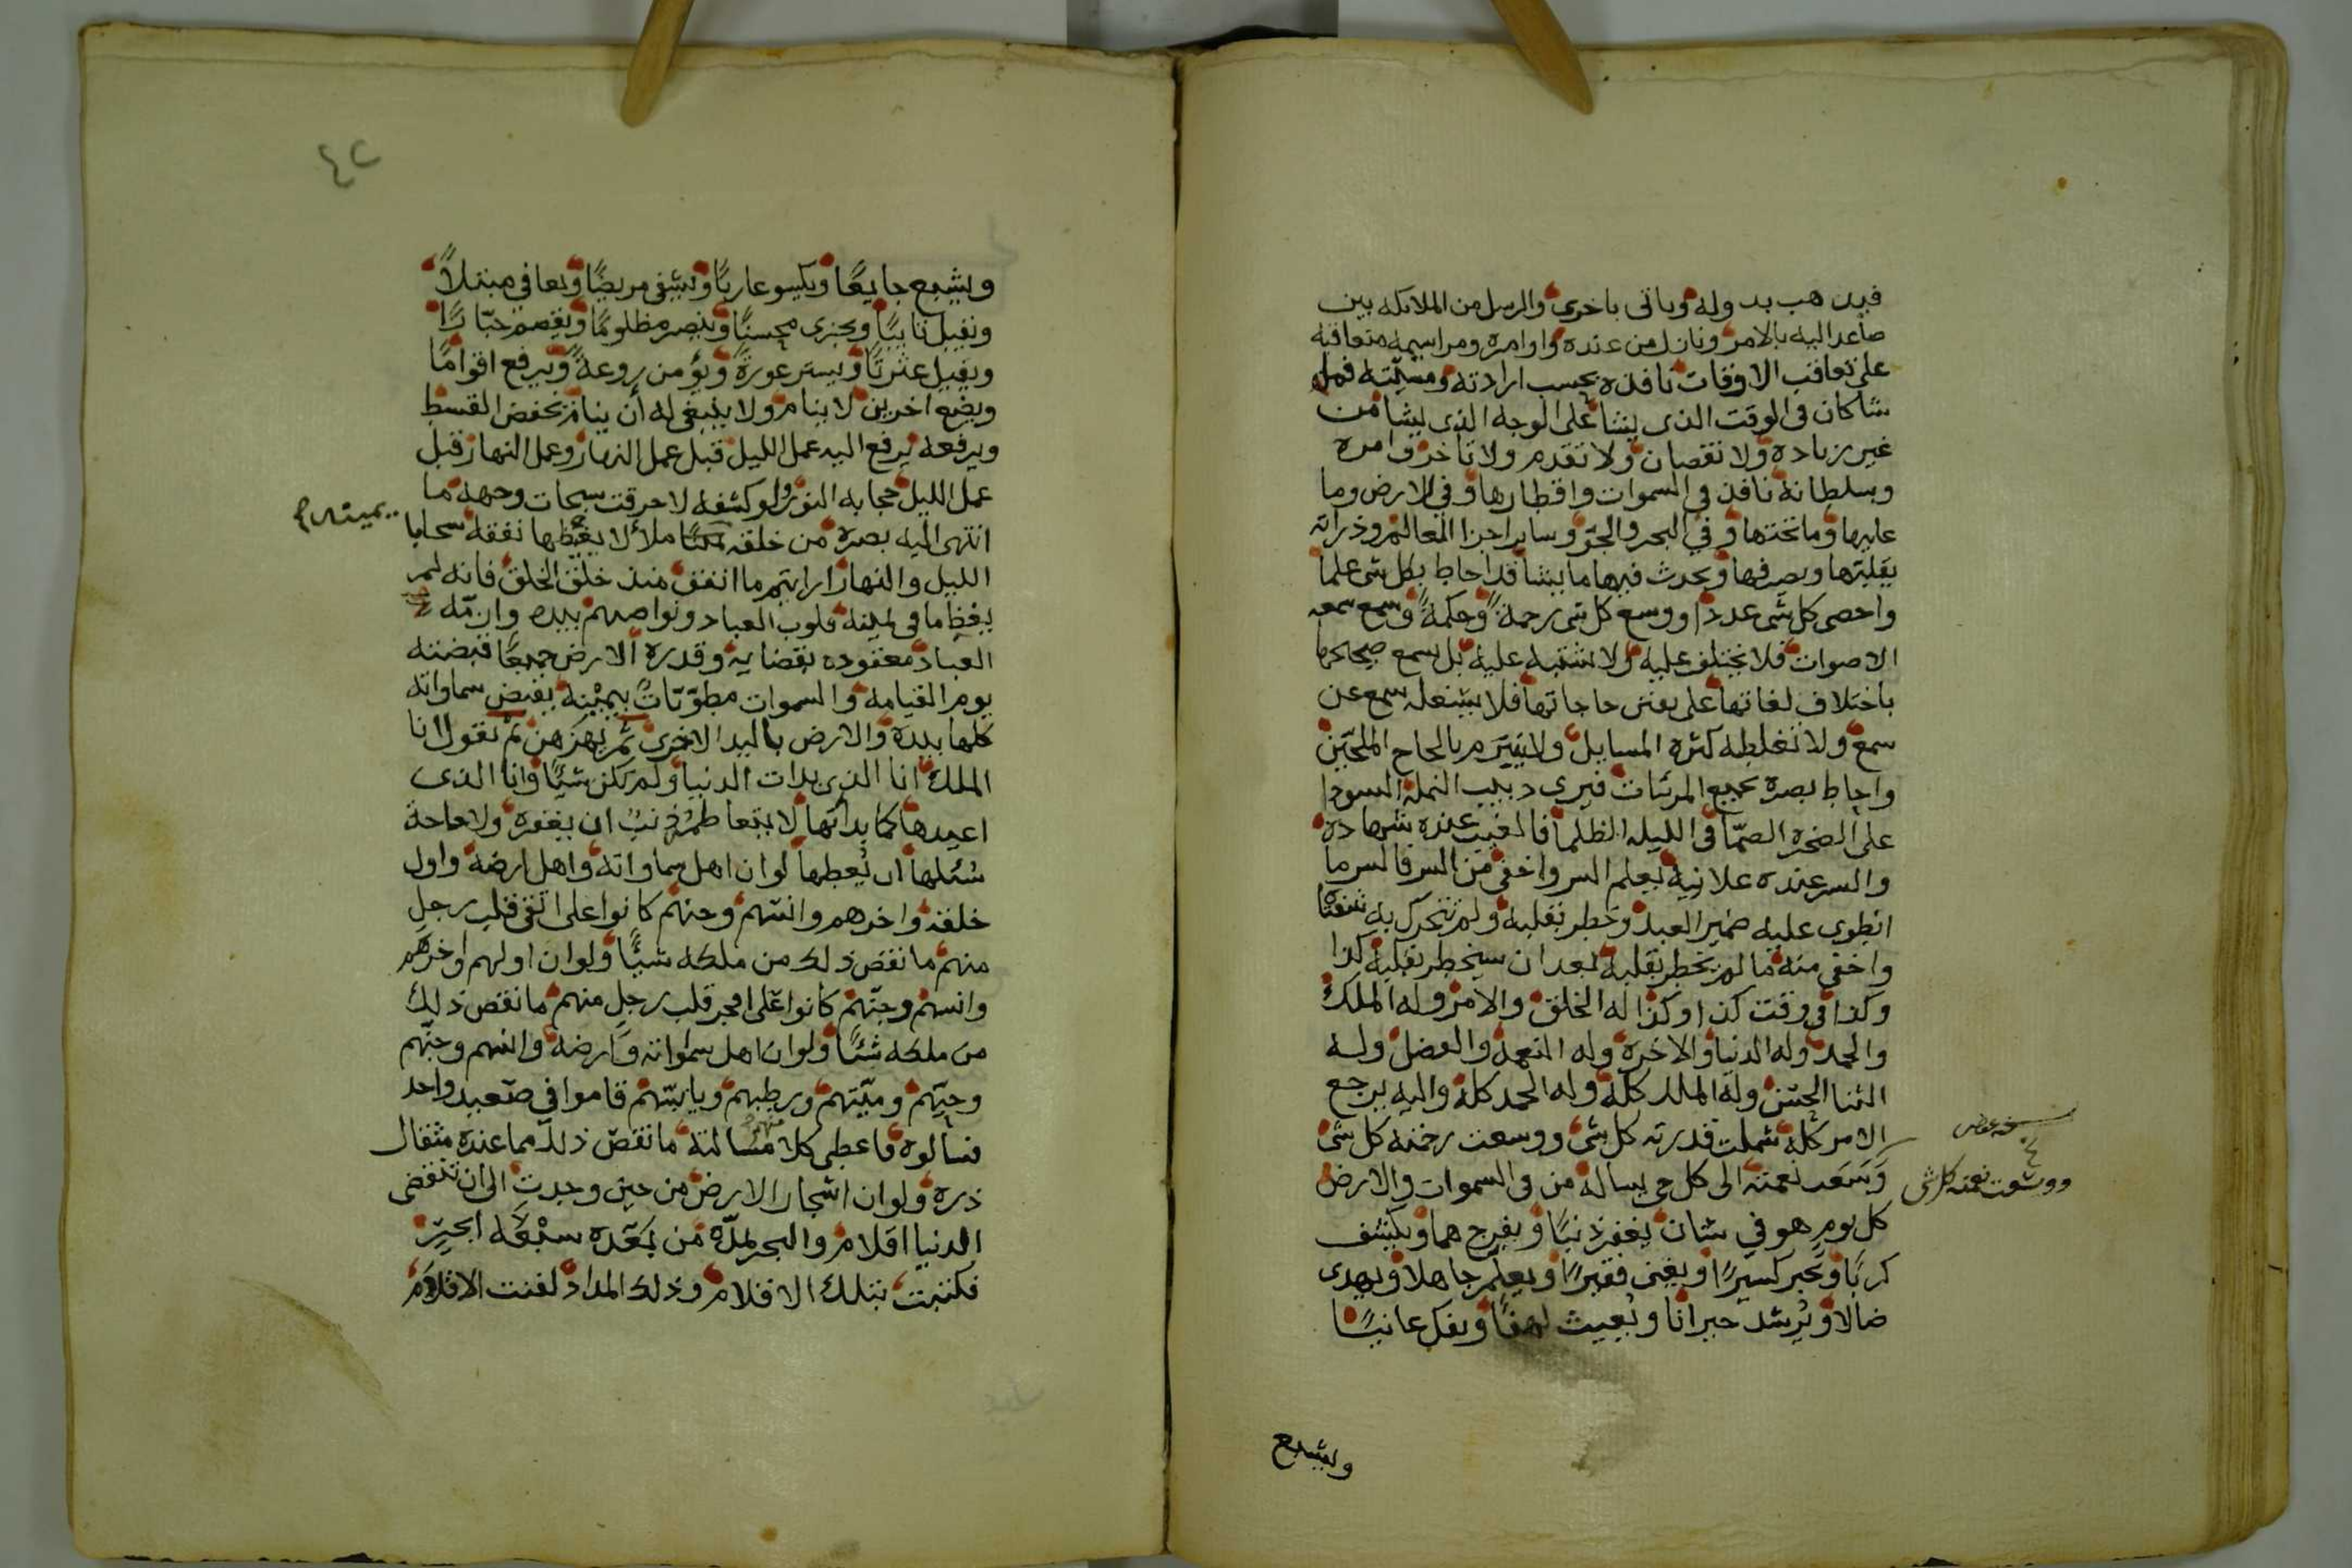 فيذهب بدولة وياتى باخرى والرسل من الملايكه بين
صاعد اليه بالامر ونازل من عنده واوامره ومراسيمه متعاقبه
على تعاقب الاوقات نافذه بحسب ارادته ومشيّته فما
شا كان فى الوقت الذى يشا على الوجه الذى يشا من
غير زياده ولا نقصان ولا تقدم ولا تاخر وامره
وسلطانه نافذ فى السموات واقطارها وفي الارض وما
عليها وما تحتها وفي البحر والجوّ وساير اجزا العالم وذراته
يقلبها ويصرفها ويحدث فيها ما يشا قد احاط بكل شى علما
واحصى كل شى عددا ووسع كل شى رحمةً وحكمةً وسع سمعه
الاصوات فلا تختلف عليه ولا تشتبه عليه بل يسمع ضجيجها
باختلاف لغاتها على تفنن حاجاتها فلا يشغله سمع عن
سمع ولا تغلطه كثره المسايل ولا يتبرم بالحاح الملحّين
واحاط بصره بجميع المرئات فيرى دبيب النملة السودا
على الصخره الصمّا فى الليله الظلما فالغيب عنده شهادة
والسر عنده علانية يعلم السر واخفى من السر فالسر ما
انطوى عليه ضمير العبد وخطر بقلبه ولم تتحرك به شفتاه
واخفى منه ما لم يخطر بقلبه بعد ان سيخطر بقلبه كذا
وكذا فى وقت كذا وكذا له الخلق والامر وله الملك
والحمد وله الدنيا والاخرة وله النعمة والفضل وله
الثنا الحسن وله الملك كله وله الحمد كله واليه يرجع
الامر كله شملت قدرته كل شى ووسعت رحمته كل شى
ووسعت نعمته كل شى
وَسَعَت نعمته الى كل حى يساله من فى السموات والارض
كل يوم هو في شان يغفر ذنبًا ويفرج هما ويكشف
كربًا ويجبر كسيرًا ويغنى فقيرًا ويعلم جاهلا ويهدى
ضالا ويُرشد حيرانا ويُغيث لهفا ويفك عانيًا
ويشبع
٤٢
ويشبع جايعًا ويكسو عاريًا ويشفى مريضًا ويعافى مبتلاً
ويقبل تايبًا ويجزى محسنًا وينصر مظلومًا ويقصم جبّارًا
ويقيل عثرتًا ويستر عورةً ويؤمن روعةً ويرفع اقوامًا
ويضع اخرين لا ينام ولا ينبغى له أن ينام يخفض القسط
ويرفعه يرفع اليه عمل الليل قبل عمل النهار وعمل النهار قبل
عمل الليل حجابه النور ولو كشفه لاحرقت سبحات وجهه ما
انتهى اليه بصره من خلقه ملأ لا يغيظها نفقه سحابا
يمينه
الليل والنهار ارايتم ما انفق منذ خلق الخلق فانه لم
يغظ ما فى يمينه قلوب العباد ونواصيهم بيده وازمّه
العباد معقوده بقضايه وقدره الارض جميعًا قبضته
يوم القيامة والسموات مطويّاتٌ بيمينه يقبض سماواته
كلها بيده والارض باليد الاخرى ثم يهزهن ثم يقول انا
الملك انا الذى بدات الدنيا ولم تكن شيًا وانا الذى
اعيدها كما بداتها لا يتعاظمه ذنبٌ ان يغفره ولا حاجة
سُئلها ان يُعطيها لو ان اهل سماواته واهل ارضه واول
خلقه واخرهم وانسهم وجنهم كانوا على اتقى قلب رجل
منهم ما نقص ذلك من ملكه شيًّا ولو ان اولهم واخرهم
وانسهم وجنّهم كانوا على افجر قلب رجل منهم ما نقص ذلك
من ملكه شئًا ولو ان اهل سمواته وارضه وانسهم وجنّهم
وحيّهم وميّتهم ورطبهم ويابسهم قاموا في صَعيد واحد
فسالوه فاعطى كلا منهم مسالته ما نقص ذلك مما عنده مثقال
ذره ولو ان اشجار الارض من حين وجدت الى ان تنقضى
الدنيا اقلام والبحر يمدّه من بَعْده سبْعَة ابحرٍ
فكتبت بتلك الاقلام وذلك المداد لفنت الاقلام